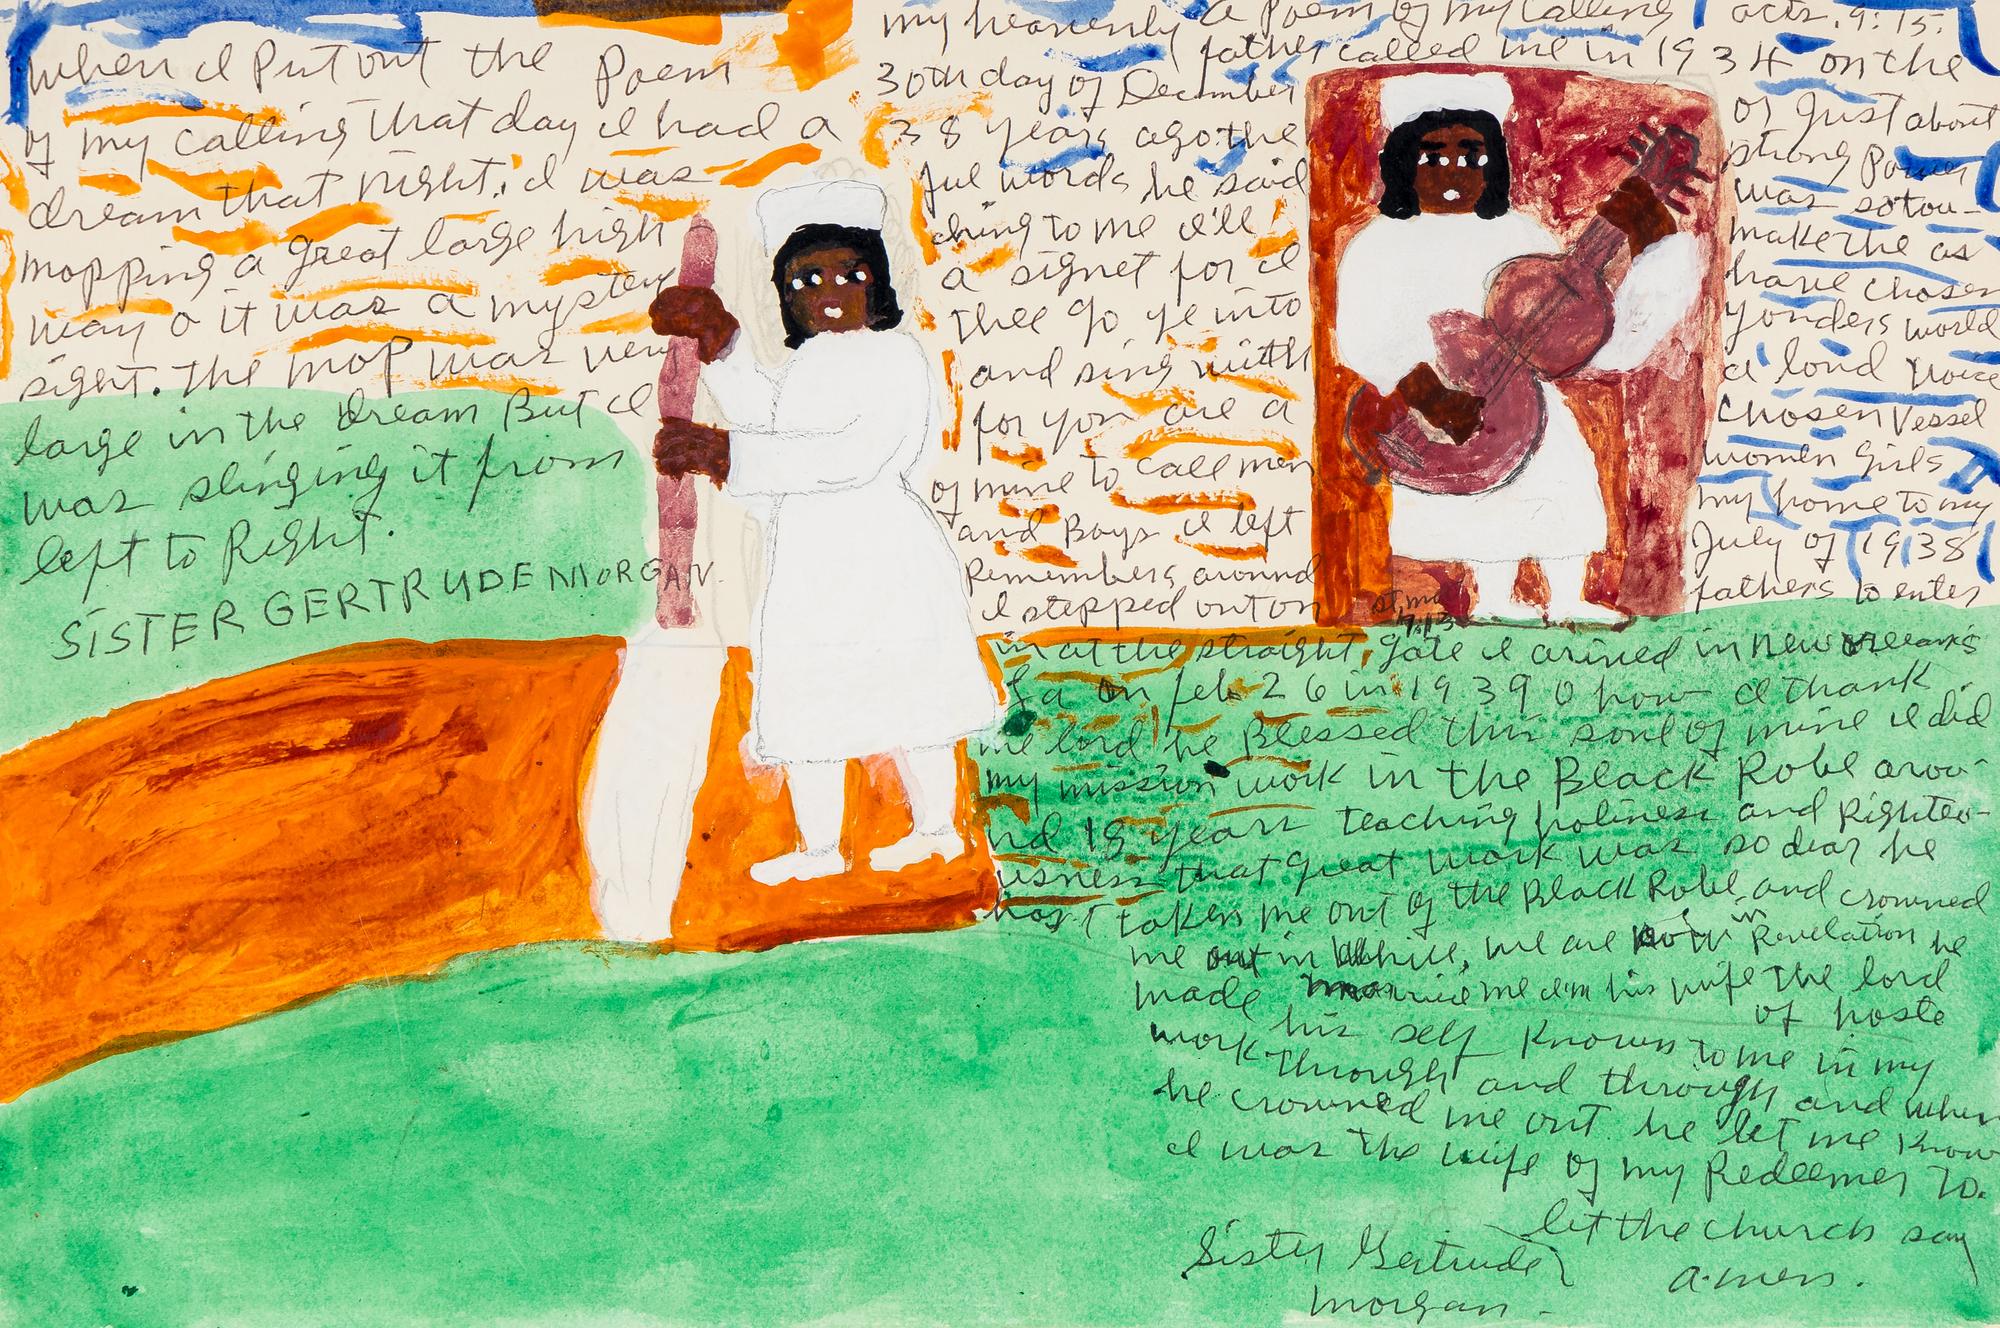 when I Put out the Poem
of my calling that day I had a
dream that night, I was
mopping a great large high
way o it was a mystery
sight. the mop was very
large in the dream But I
was slinging it from
left to Right.
SISTER GERTRUDE MORGAN.
a Poem of my calling acts. 9:15.
my heavenly father called me in 1934 on the
30th day of December or Just about
38 years ago the strong Power
ful words he said was so tou-
ching to me I'll make the as
a signet for I have chosen
thee go ye into yonders world
and sing with a loud voice
for you are a chosen vessel
of mine to call men women Girls
and Boys I left my home to my
Remembers around July of 1938
I stepped out on fathers to enter
st, mt 7:13
in at the straight, gate I arived in new orleans
La on feb 26 in 1939 O how I thank
the lord he Blessed this soul of mine I did
my mission work in the Black Robe arou-
nd 18 years teaching holiness and Righteo-
usness that great work was so dear he
has taken me out of the Black Robe and crowned
me out in White, we are now in Revelation he
married me I'm his wife the lord
of hoste
made his self Known to me in my
work through and through and when
he crowned me out he let me Know
I was the wife of my Redeemer To.
let the church say
a.men.
Sister Gertrude
Morgan.